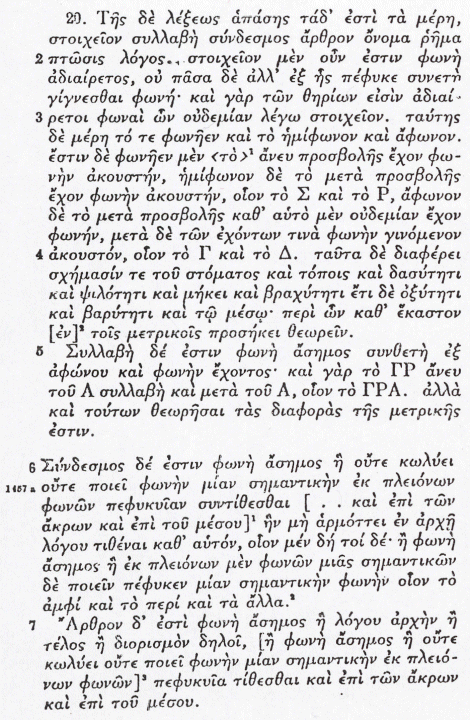 20. Τῆς δὲ λέξεως ἁπάσης τάδ’ ἐστὶ τὰ μέρη,
στοιχεῖον συλλαβὴ σύνδεσμος ἄρθρον ὄνομα ῥῆμα
2 πτῶσις λόγος. στοιχεῖον μὲν οὖν ἐστιν φωνὴ
ἀδιαίρετος, οὐ πᾶσα δὲ ἀλλ’ ἐξ ἧς πέφυκε συνετὴ
γίγνεσθαι φωνή· καὶ γὰρ τῶν θηρίων εἰσὶν ἀδιαί-
3 ρετοι φωναὶ ὧν οὐδεμίαν λέγω στοιχεῖον. ταύτης
δὲ μέρη τό τε φωνῆεν καὶ τὸ ἡμίφωνον καὶ ἄφωνον.
ἔστιν δὲ φωνῆεν μὲν <τὸ>¹ ἄνευ προσβολῆς ἔχον φω-
νὴν ἀκουστήν, ἡμίφωνον δὲ τὸ μετὰ προσβολῆς
ἔχον φωνὴν ἀκουστήν, οἷον τὸ Σ καὶ τὸ Ρ, ἄφωνον
δὲ τὸ μετὰ προσβολῆς καθ’ αὑτὸ μὲν οὐδεμίαν ἔχον
φωνήν, μετὰ δὲ τῶν ἐχόντων τινὰ φωνὴν γινόμενον
4 ἀκουστόν, οἷον τὸ Γ καὶ τὸ Δ. ταῦτα δὲ διαφέρει
σχήμασίν τε τοῦ στόματος καὶ τόποις καὶ δασύτητι
καὶ ψιλότητι καὶ μήκει καὶ βραχύτητι ἔτι δὲ ὀξύτητι
καὶ βαρύτητι καὶ τῷ μέσῳ· περὶ ὧν καθ’ ἕκαστον
[ἐν]² τοῖς μετρικοῖς προσήκει θεωρεῖν.
5 Συλλαβὴ δέ ἐστιν φωνὴ ἄσημος συνθετὴ ἐξ
ἀφώνου καὶ φωνὴν ἔχοντος· καὶ γὰρ τὸ ΓΡ ἄνευ
τοῦ Α συλλαβὴ καὶ μετὰ τοῦ Α, οἷον τὸ ΓΡΑ. ἀλλὰ
καὶ τούτων θεωρῆσαι τὰς διαφορὰς τῆς μετρικῆς
ἐστιν.
6 Σύνδεσμος δέ ἐστιν φωνὴ ἄσημος ἣ οὔτε κωλύει
1457 a οὔτε ποιεῖ φωνὴν μίαν σημαντικὴν ἐκ πλειόνων
φωνῶν πεφυκυῖαν συντίθεσθαι [ . . καὶ ἐπὶ τῶν
ἄκρων καὶ ἐπὶ τοῦ μέσου]¹ ἣν μὴ ἁρμόττει ἐν ἀρχῇ
λόγου τιθέναι καθ’ αὑτόν, οἷον μέν δή τοί δέ· ἢ φωνὴ
ἄσημος ἣ ἐκ πλειόνων μὲν φωνῶν μιᾶς σημαντικῶν
δὲ ποιεῖν πέφυκεν μίαν σημαντικὴν φωνὴν οἷον τὸ
ἀμφί καὶ τὸ περί καὶ τὰ ἄλλα.²
7 Ἄρθρον δ’ ἐστὶ φωνὴ ἄσημος ἣ λόγου ἀρχὴν ἢ
τέλος ἢ διορισμὸν δηλοῖ, [ἢ φωνὴ ἄσημος ἣ οὔτε
κωλύει οὔτε ποιεῖ φωνὴν μίαν σημαντικὴν ἐκ πλειό-
νων φωνῶν]³ πεφυκυῖα τίθεσθαι καὶ ἐπὶ τῶν ἄκρων
καὶ ἐπὶ τοῦ μέσου.